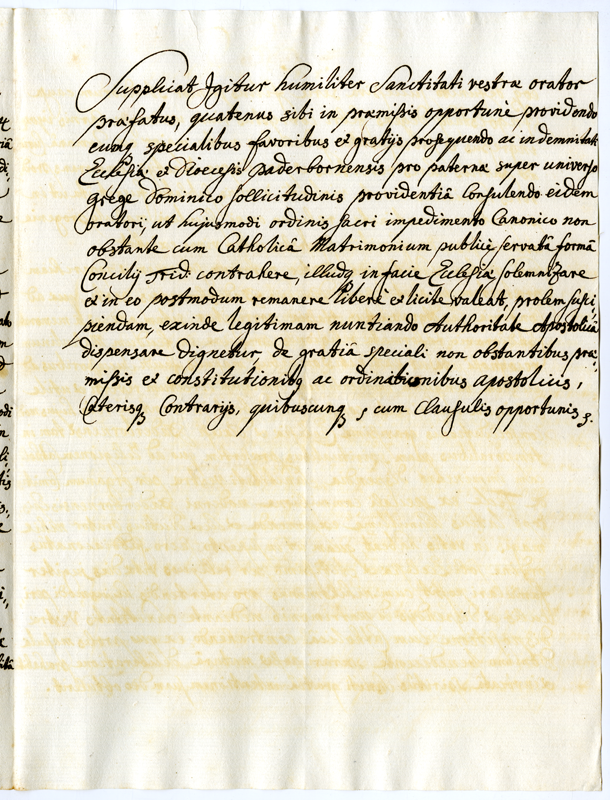 Supplicat Igitur humiliter Sanctitati vestræ orator
præfatus, quatenus sibi in præmissis opportunè providendo
eumq specialibus favoribus et gratijs prosequendo ac indemnitati
Ecclesiæ et Diœcesis Paderbornensis pro paterna super universo
grege Dominico sollicitudinis providentiâ consulendo eidem
oratori, ut hujusmodi ordinis sacri impedimento Canonico non
obstante cum Catholicâ Matrimonium publicè servatâ formâ
Concilij Trid: contrahere, illudq in facie Ecclesiæ solemnizare
et in eo postmodum remanere liberè et licite valeat, prolem susci:
piendam, exinde legitimam nuntiando Authoritate Apostolicâ
dispensare dignetur, de gratiâ speciali non obstantibus præ:
missis et constitutionibq ac ordinationibus apostolicis,
Cæterisq Contrarijs, quibuscunq, cum Clausulis opportunis